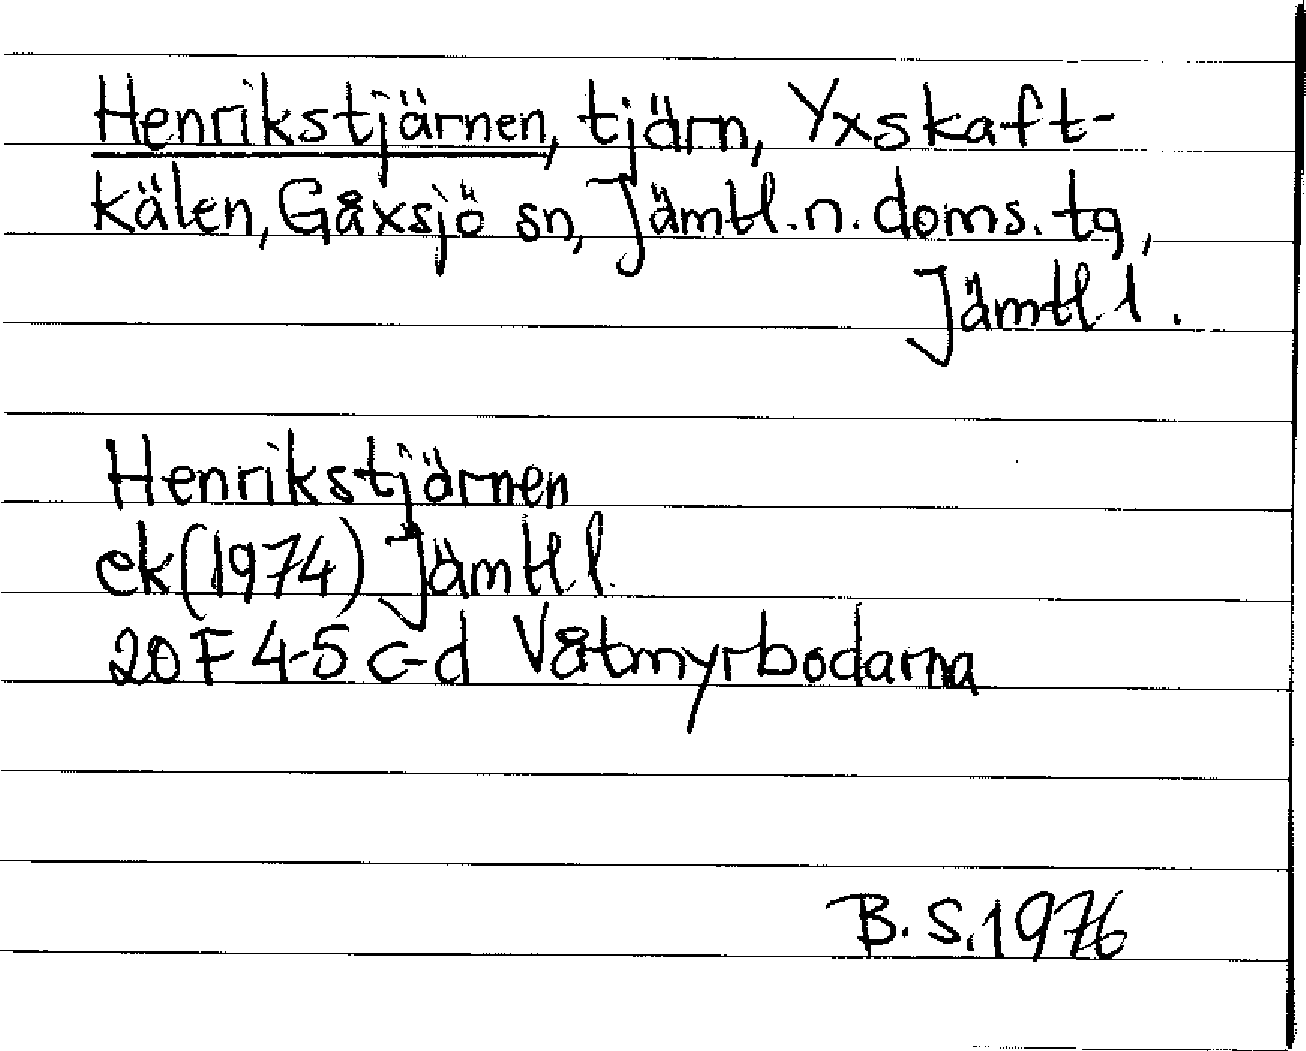 Henrikstjärnen, tjärn, Yxskaft-
kälen, Gåxsjö sn, Jämtl. n. doms. tg,
Jämtl l.
Henrikstjärnen
ek (1974) Jämtl l.
20 F 4-5 c-d Våtmyrbodarna
B. S. 1976